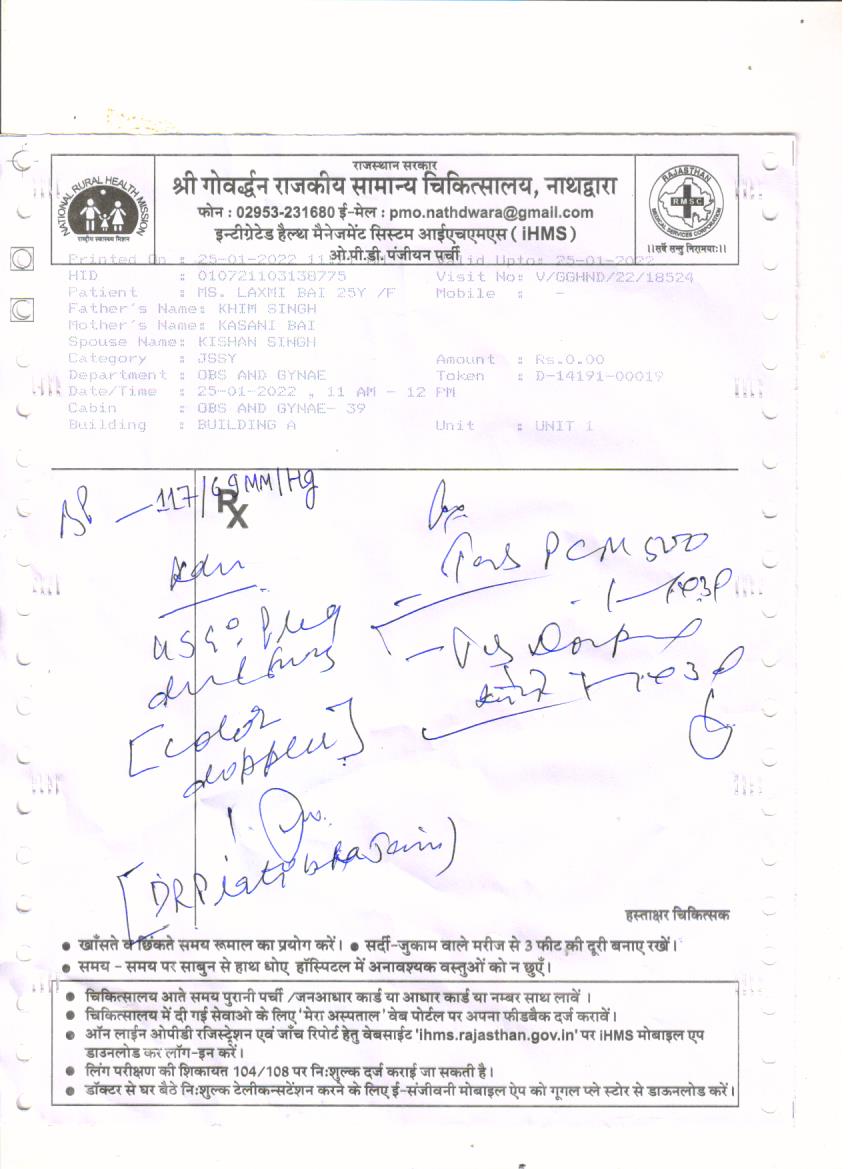 राजस्थान सरकार
श्री गोवर्द्धन राजकीय सामान्य चिकित्सालय, नाथद्वारा
फोन : 02953-231680 ई-मेल : pmo.nathdwara@gmail.com
इन्टीग्रेटेड हैल्थ मैनेजमेंट सिस्टम आईएचएमएस ( iHMS)
ओ.पी.डी. पंजीयन पर्ची
NATIONAL RURAL HEALTH MISSION
राष्ट्रीय ग्रामीण स्वास्थ्य मिशन
RAJASTHAN
RMSC
MEDICAL SERVICES CORPORATION
।।सर्वे सन्तु निरामयाः।।
Printed On : 25-01-2022 Valid Upto: 25-01-2022
HID : 010721103138775 Visit No: V/GGHND/22/18524
Patient : MS. LAXMI BAI 25Y /F Mobile : -
Father's Name: KHIM SINGH
Mother's Name: KASANI BAI
Spouse Name: KISHAN SINGH
Category : JSSY Amount : Rs.0.00
Department : OBS AND GYNAE Token : D-14191-00019
Date/Time : 25-01-2022 , 11 AM - 12 PM
Cabin : OBS AND GYNAE- 39
Building : BUILDING A Unit : UNIT 1
BP — 117/69MM/Hg
Rx
Adv
PCM 500
USG
[color
doppler]
हस्ताक्षर चिकित्सक
● खाँसते व छिंकते समय रूमाल का प्रयोग करें। ● सर्दी-जुकाम वाले मरीज से 3 फीट की दूरी बनाए रखें।
● समय - समय पर साबुन से हाथ धोए हॉस्पिटल में अनावश्यक वस्तुओं को न छुएँ।
● चिकित्सालय आते समय पुरानी पर्ची /जनआधार कार्ड या आधार कार्ड या नम्बर साथ लावें ।
● चिकित्सालय में दी गई सेवाओ के लिए 'मेरा अस्पताल' वेब पोर्टल पर अपना फीडबैक दर्ज करावें।
● ऑन लाईन ओपीडी रजिस्ट्रेशन एवं जाँच रिपोर्ट हेतु वेबसाईट 'ihms.rajasthan.gov.in' पर iHMS मोबाइल एप
डाउनलोड कर लॉग-इन करें।
● लिंग परीक्षण की शिकायत 104/108 पर निःशुल्क दर्ज कराई जा सकती है।
● डॉक्टर से घर बैठे निःशुल्क टेलीकन्सटेंशन करने के लिए ई-संजीवनी मोबाइल ऐप को गूगल प्ले स्टोर से डाऊनलोड करें।